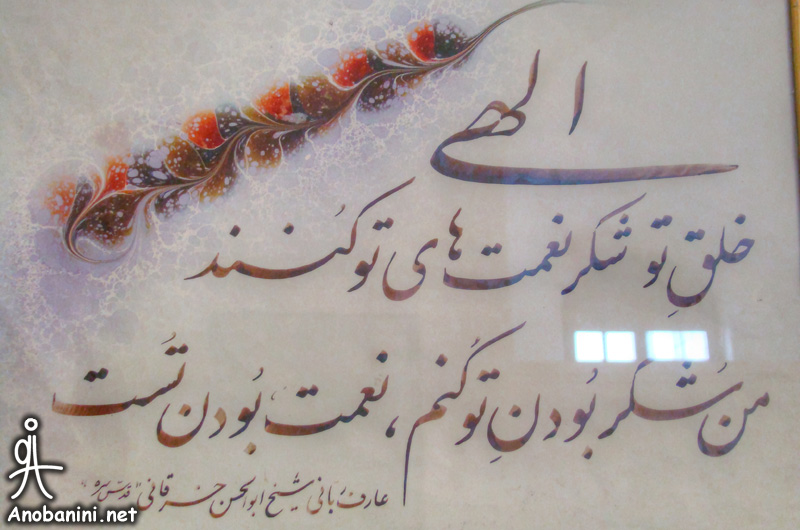 الهی
خلقِ تو شکر نعمت های تو کُنند
من شُکر بُودنِ تو کُنم ، نعمت بُودن تُست
عارف ربانی شیخ ابوالحسن خرقانی "قدس سره"
Anobanini.net